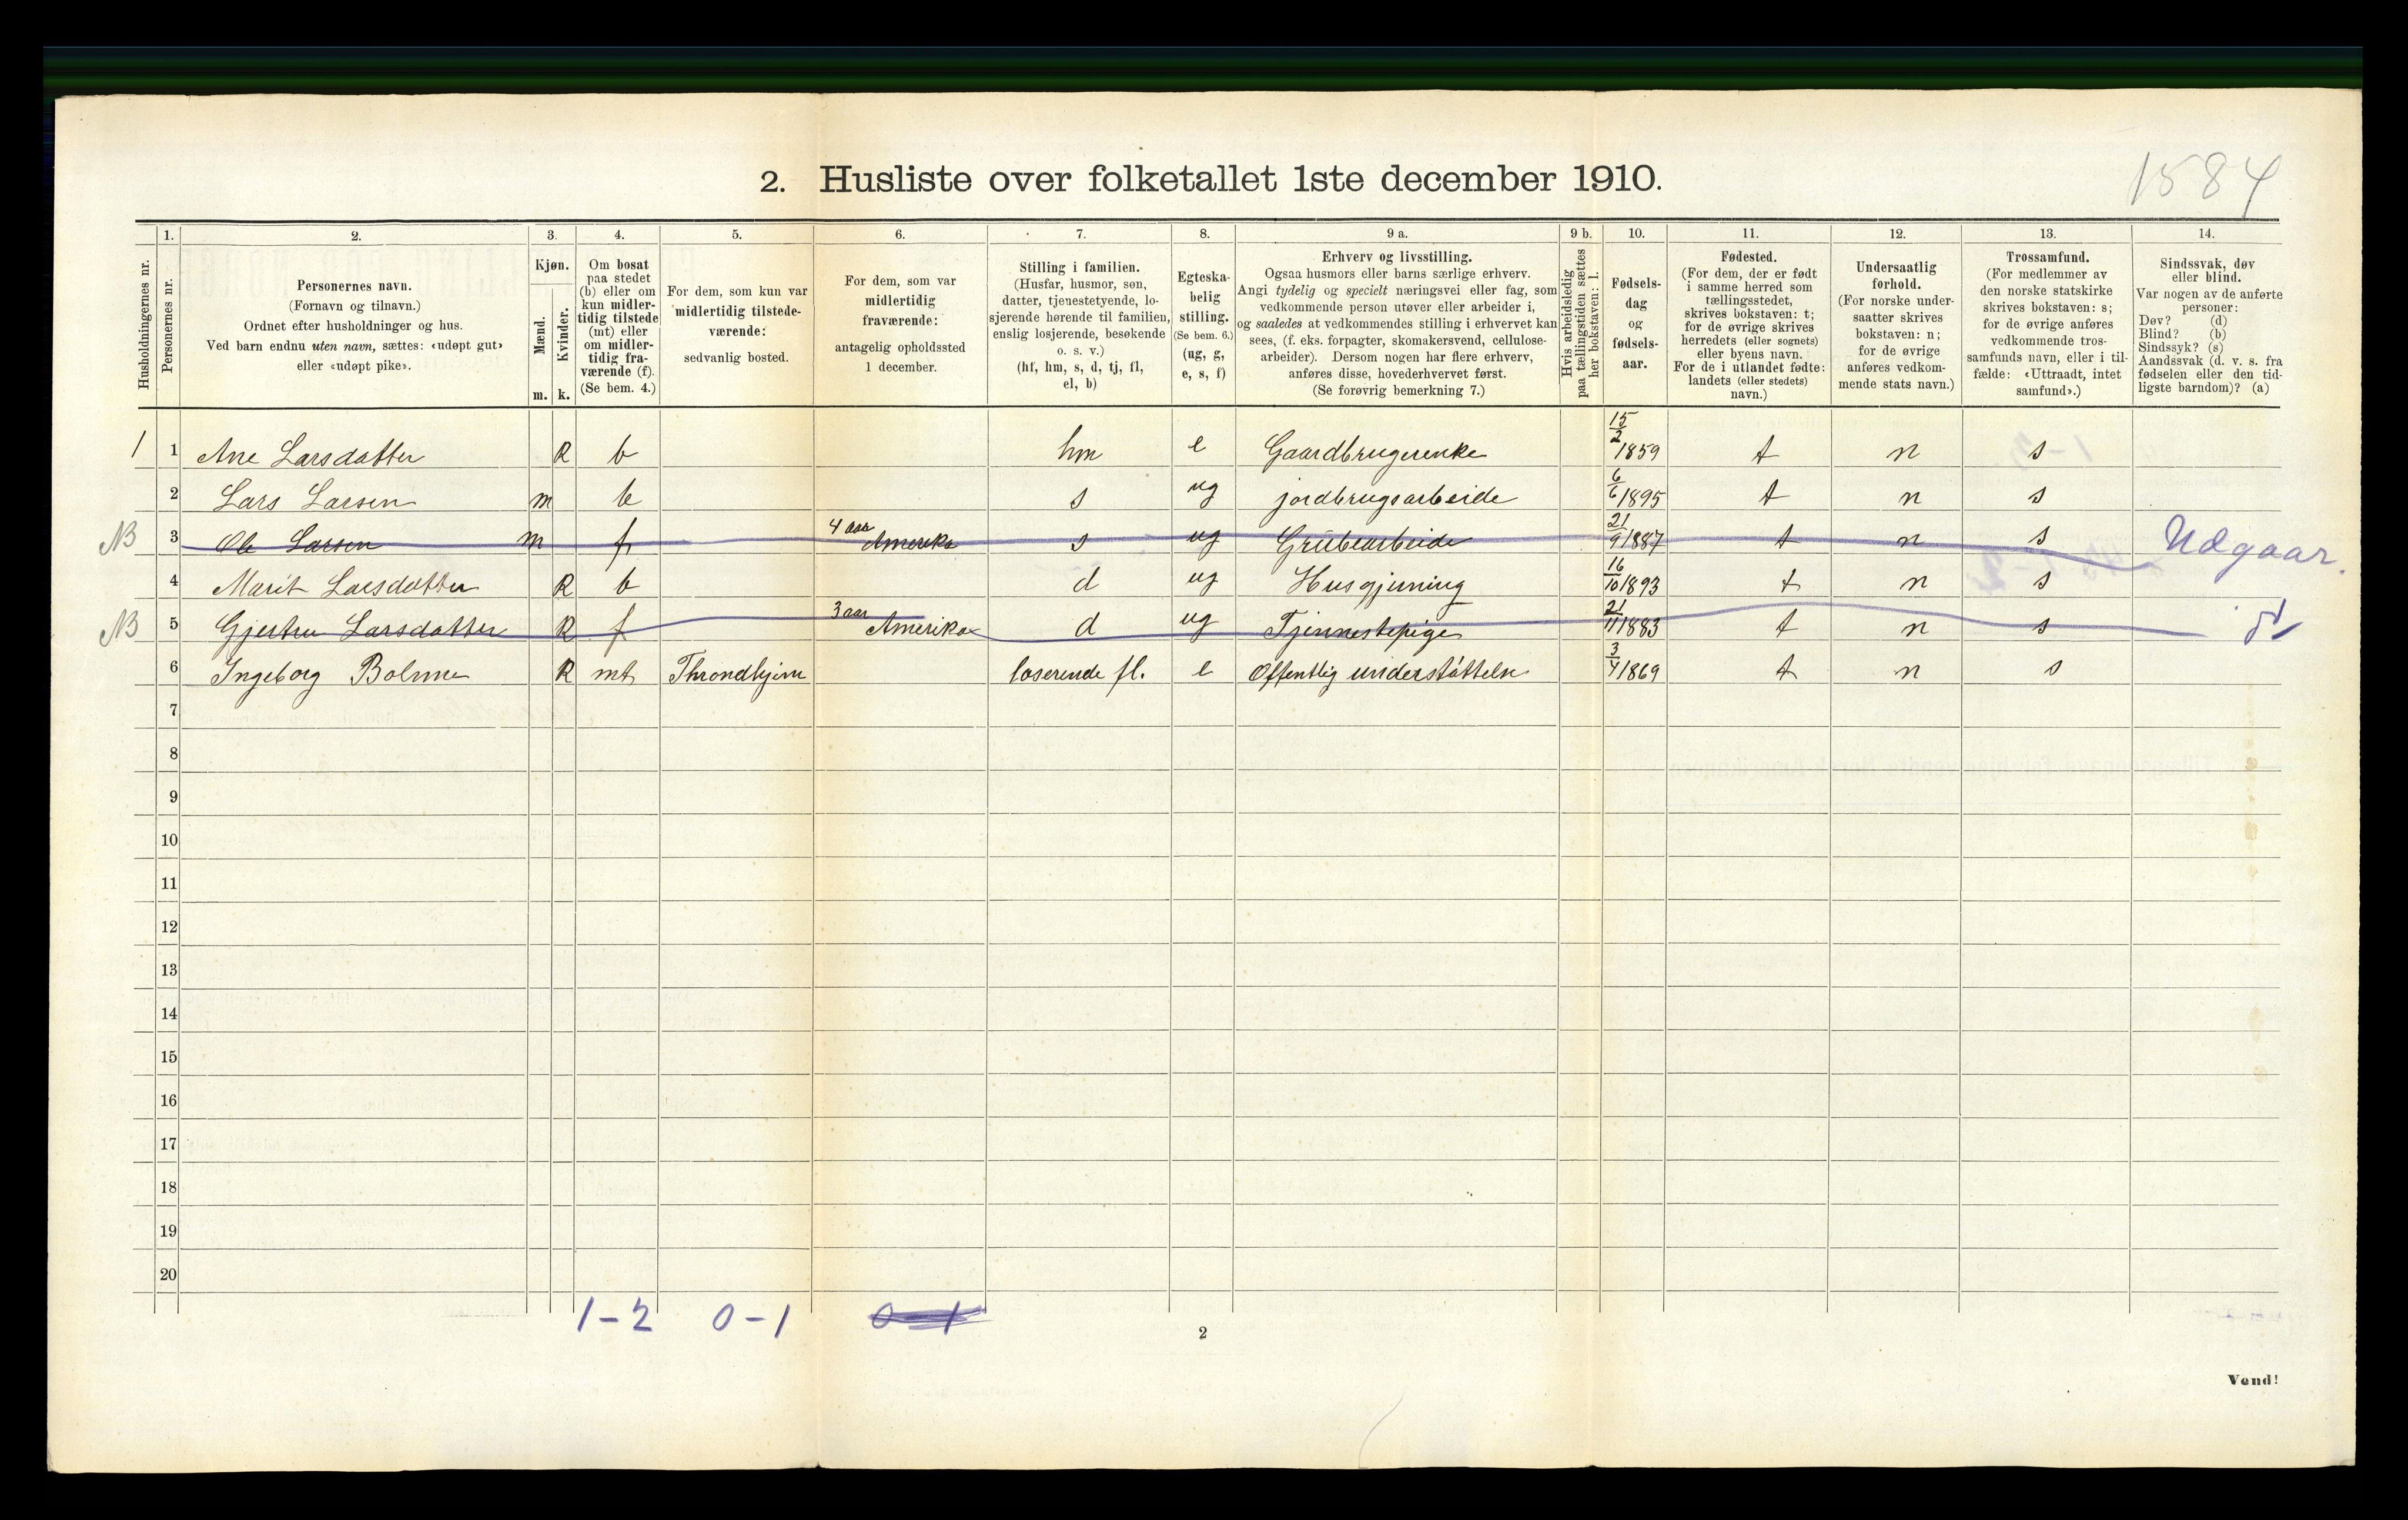 1584
2. Husliste over folketallet 1ste december 1910.
Husholdningernes nr.
1. Personernes nr.
2. Personernes navn.
(Fornavn og tilnavn.)
Ordnet efter husholdninger og hus.
Ved barn endnu uten navn, sættes: «udøpt gut»
eller «udøpt pike».
3. Kjøn.
Mænd. m.
Kvinder. k.
4. Om bosat
paa stedet
(b) eller om
kun midler-
tidig tilstede
(mt) eller
om midler-
tidig fra-
værende (f).
(Se bem. 4.)
5. For dem, som kun var
midlertidig tilstede-
værende:
sedvanlig bosted.
6. For dem, som var
midlertidig
fraværende:
antagelig opholdssted
1 december.
7. Stilling i familien.
(Husfar, husmor, søn,
datter, tjenestetyende, lo-
sjerende hørende til familien,
enslig losjerende, besøkende
o. s. v.)
(hf, hm, s, d, tj, fl,
el, b)
8. Egteska-
belig
stilling.
(Se bem. 6.)
(ug, g,
e, s, f)
9 a. Erhverv og livsstilling.
Ogsaa husmors eller barns særlige erhverv.
Angi tydelig og specielt næringsvei eller fag, som
vedkommende person utøver eller arbeider i,
og saaledes at vedkommendes stilling i erhvervet kan
sees, (f. eks. forpagter, skomakersvend, cellulose-
arbeider). Dersom nogen har flere erhverv,
anføres disse, hovederhvervet først.
(Se forøvrig bemerkning 7.)
9 b. Hvis arbeidsledig
paa tællingstiden sættes
her bokstaven: l.
10. Fødsels-
dag
og
fødsels-
aar.
11. Fødested.
(For dem, der er født
i samme herred som
tællingsstedet,
skrives bokstaven: t;
for de øvrige skrives
herredets (eller sognets)
eller byens navn.
For de i utlandet fødte:
landets (eller stedets)
navn.)
12. Undersaatlig
forhold.
(For norske under-
saatter skrives
bokstaven: n;
for de øvrige
anføres vedkom-
mende stats navn.)
13. Trossamfund.
(For medlemmer av
den norske statskirke
skrives bokstaven: s;
for de øvrige anføres
vedkommende tros-
samfunds navn, eller i til-
fælde: «Uttraadt, intet
samfund».)
14. Sindssvak, døv
eller blind.
Var nogen av de anførte
personer:
Døv? (d)
Blind? (b)
Sindssyk? (s)
Aandssvak (d. v. s. fra
fødselen eller den tid-
ligste barndom)? (a)
1 1 Ane Larsdatter K b hm e Gaardbrugerenke 15/2 1859 t n s
2 Lars Larsen m b s ug jordbrugsarbeide 6/6 1895 t n s
NB 3 Ole Larsen m f 4 aar Amerika s ug Grubearbeide 21/9 1887 t n s Udgaar.
4 Marit Larsdatter K b d ug Husgjerning 16/10 1893 t n s
NB 5 Gjertru Larsdatter K f 3 aar Amerika d ug Tjennestepige 21/11 1883 t n s
6 Ingeborg Bolme K mt Throndhjem loserende fl. e Offentlig understøttelse 3/4 1869 t n s
7
8
9
10
11
12
13
14
15
16
17
18
19
20
1-2 0-1 0-1
2
Vend!